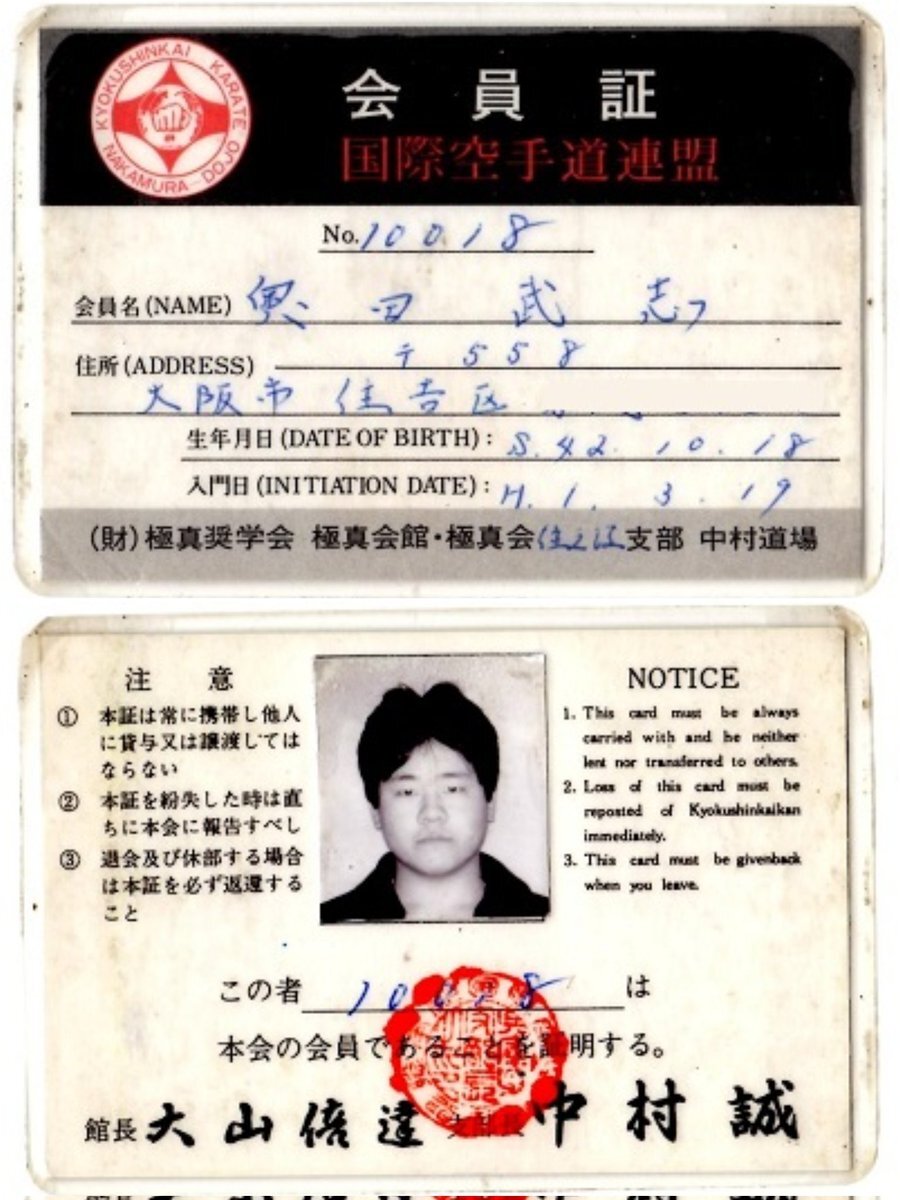 KYOKUSHINKAI KARATE
NAKAMURA DOJO
会員証
国際空手道連盟
No. 10018
会員名(NAME) 奥田 武志
住所(ADDRESS) 〒558
大阪市 住吉区
生年月日(DATE OF BIRTH): S.42.10.18
入門日(INITIATION DATE): H.1.3.19
(財)極真奨学会 極真会館・極真会住之江支部 中村道場
注意
① 本証は常に携帯し他人
に貸与又は譲渡しては
ならない
② 本証を紛失した時は直
ちに本会に報告すべし
③ 退会及び休部する場合
は本証を必ず返還する
こと
NOTICE
1. This card must be always
carried with and he neither
lent nor transferred to others.
2. Loss of this card must be
reposted of Kyokushinkaikan
immediately.
3. This card must be givenback
when you leave.
この者 10018 は
本会の会員であることを証明する。
館長 大山倍達 支部長 中村誠